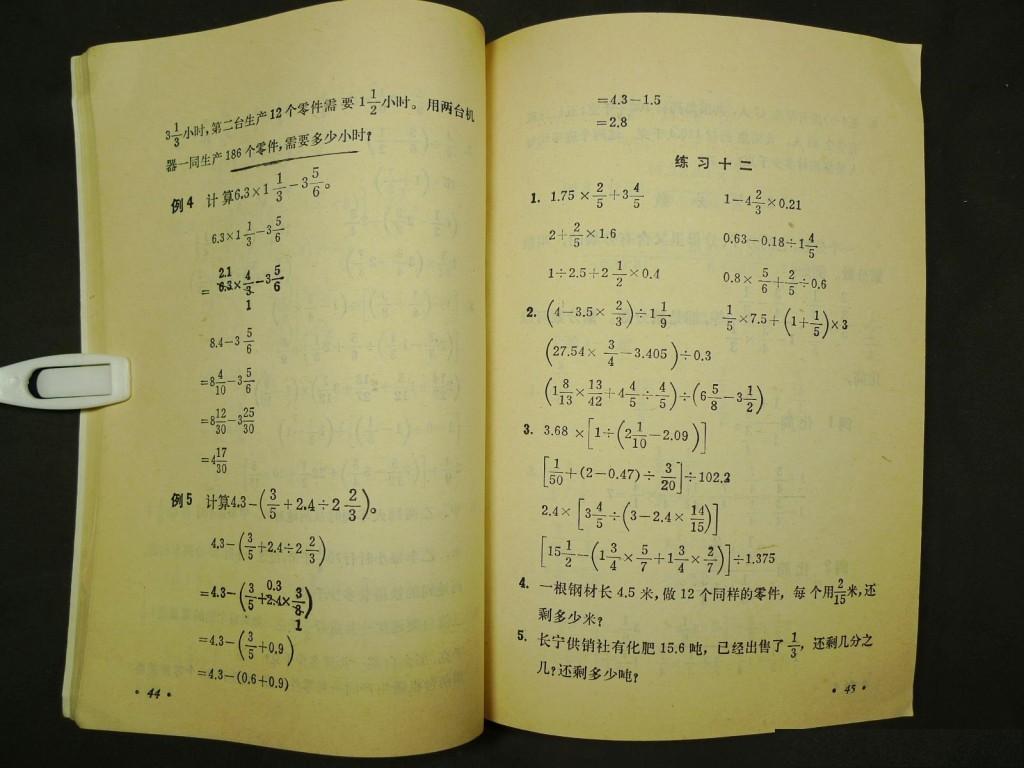 3 1/3 小时，第二台生产12个零件需要 1 1/2 小时。用两台机
器一同生产186个零件，需要多少小时？
例4 计算6.3×1 1/3－3 5/6。
6.3×1 1/3－3 5/6
＝6.3×4/3－3 5/6
2.1
1
8.4－3 5/6
＝8 4/10－3 5/6
＝8 12/30－3 25/30
＝4 17/30
例5 计算4.3－(3/5＋2.4÷2 2/3)。
4.3－(3/5＋2.4÷2 2/3)
＝4.3－(3/5＋2.4×3/8)
0.3
1
＝4.3－(3/5＋0.9)
＝4.3－(0.6＋0.9)
·44·
＝4.3－1.5
＝2.8
练习十二
1. 1.75×2/5＋3 4/5 1－4 2/3×0.21
2＋2/5×1.6 0.63－0.18÷1 4/5
1÷2.5＋2 1/2×0.4 0.8×5/6＋2/5÷0.6
2. (4－3.5×2/3)÷1 1/9 1/5×7.5＋(1＋1/5)×3
(27.54×3/4－3.405)÷0.3
(1 8/13×13/42＋4 4/5÷4/5)÷(6 5/8－3 1/2)
3. 3.68×[1÷(2 1/10－2.09)]
[1/50＋(2－0.47)÷3/20]÷102.2
2.4×[3 4/5÷(3－2.4×14/15)]
[15 1/2－(1 3/4×5/7＋1 3/4×2/7)]÷1.375
4. 一根钢材长4.5米，做12个同样的零件，每个用2/15米，还
剩多少米？
5. 长宁供销社有化肥15.6吨，已经出售了1/3，还剩几分之
几？还剩多少吨？
·45·